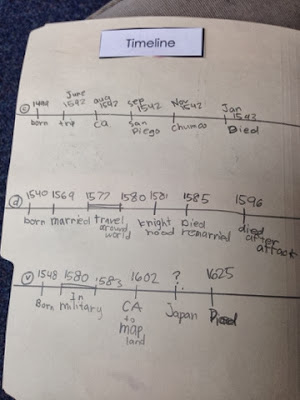 Timeline
C
1499 June 1542 aug 1542 sep 1542 Nov 1542 Jan 1543
born trip CA San Diego Chumas Died
d
1540 1569 1577 1580 1581 1585 1596
born married travel around world knight hood Died remarried died after attack
V
1548 1580 1583 1602 ? 1625
Born In military CA to map land Japan Died